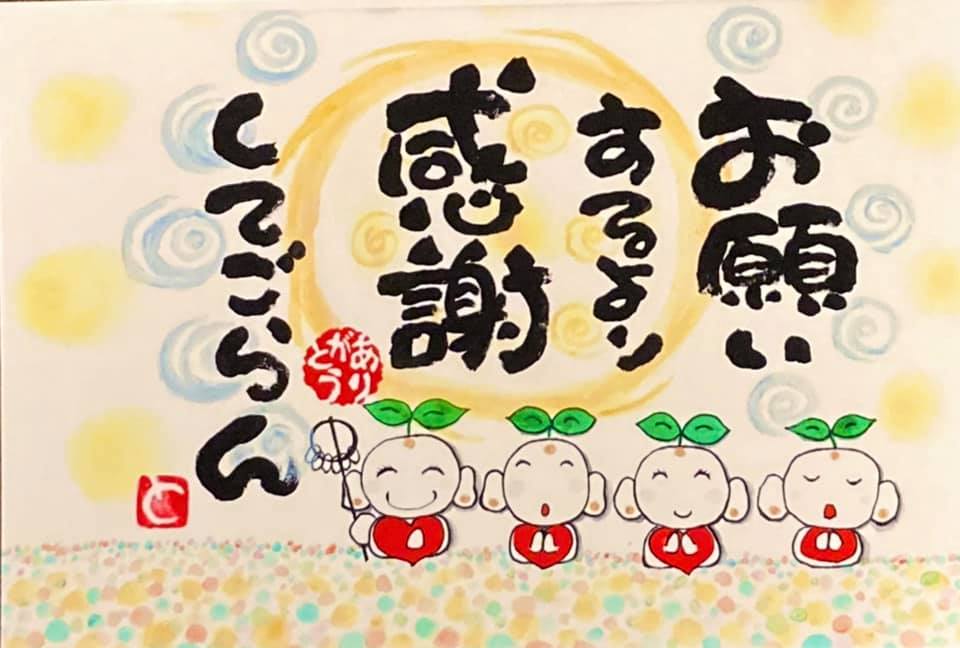 お願い
するより
感謝
してごらん
ありがとう